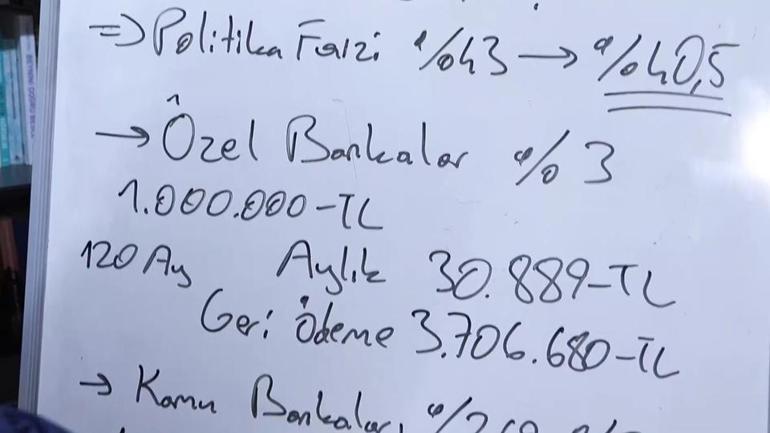 ⇒ Politika Faizi %43 → %40,5
→ Özel Bankalar %3
1.000.000-TL
120 Ay Aylık 30.889-TL
Geri Ödeme 3.706.680-TL
→ Kamu Bankaları